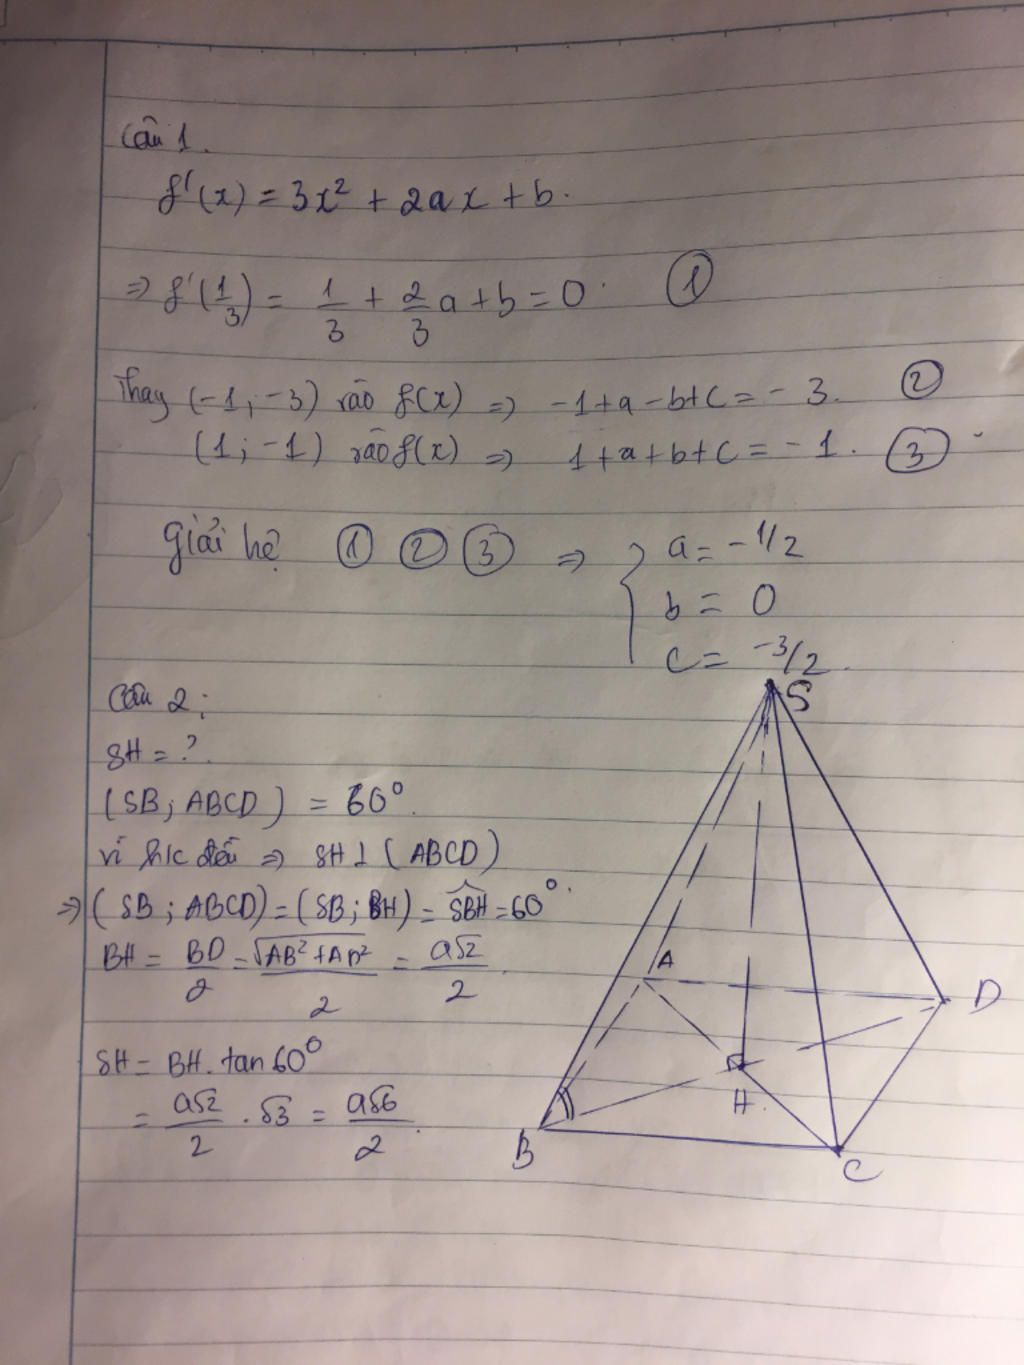 Câu 1.
f'(x) = 3x² + 2ax + b.
⇒ f'(1/3) = 1/3 + 2/3 a + b = 0. ①
Thay (-1; -3) vào f(x) ⇒ -1 + a - b + c = -3. ②
(1; -1) vào f(x) ⇒ 1 + a + b + c = -1. ③
Giải hệ ① ② ③ ⇒ { a = -1/2
b = 0
c = -3/2.
Câu 2:
SH = ?
(SB; ABCD) = 60°.
vì h/c đều ⇒ SH ⊥ (ABCD)
⇒ (SB; ABCD) = (SB; BH) = SBH = 60°.
BH = BD/2 = √(AB² + AD²)/2 = a√2/2.
SH = BH.tan60°
= a√2/2 . √3 = a√6/2.
S
A
D
H
B
C